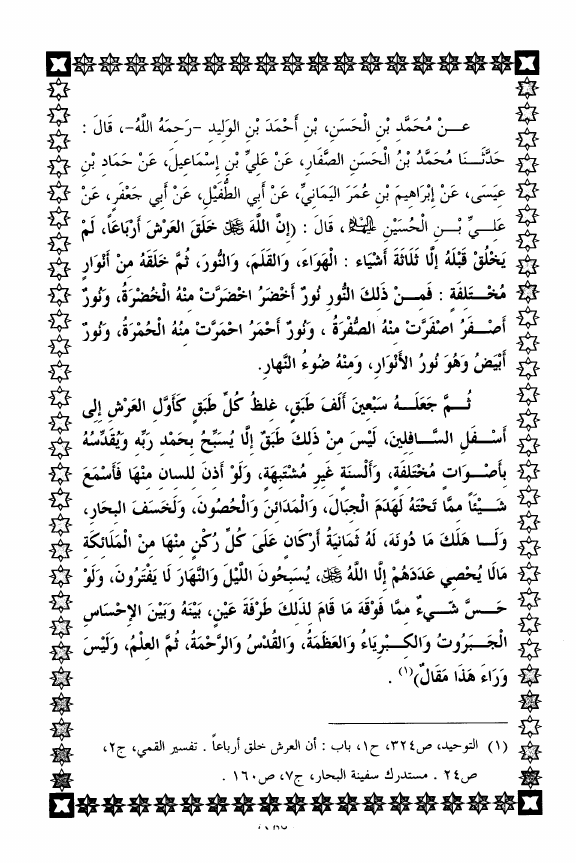 عَـنْ مُحَمَّدِ بْنِ الْحَسَنِ، بْنِ أَحْمَدَ بْنِ الوَلِيد –رَحِمَهُ اللَّهُ–، قَالَ :
حَدَّثَـنَا مُحَمَّدُ بْنُ الْحَسَنِ الصَّفَارِ، عَنْ عَلِيِّ بْنِ إِسْمَاعِيلَ، عَنْ حَمادِ بْنِ
عِيسَى، عَنْ إِبْرَاهِيمَ بْنِ عُمَرَ اليَمَانِيِّ، عَنْ أَبِي الطُّفَيْلِ، عَنْ أَبِي جَعْفَرٍ، عَنْ
عَلِـيِّ بْـنِ الْحُسَيْنِ عليه السلام ، قَالَ : (إِنَّ اللَّهَ خَلَقَ العَرْشَ أَرْبَاعَاً، لَمْ
يَخْلُقْ قَبْلَهُ إِلَّا ثَلَاثَةَ أَشْيَاء : الْهَوَاءَ، وَالقَلَمَ، وَالنُّورَ، ثُمَّ خَلَقَهُ مِنْ أَنْوَارٍ
مُخْـتَلِفَةٍ : فَمِـنْ ذَلِكَ النُّورِ نُورٌ أَخْضَرُ اخْضَرَّتْ مِنْهُ الْخُضْرَةُ، وَنُورٌ
أَصْـفَرُ اصْفَرَّتْ مِنْهُ الصُّفْرَةُ ، وَنُورٌ أَحْمَرُ احْمَرَّتْ مِنْهُ الْحُمْرَةُ، وَنُورٌ
أَبْيَضُ وَهُوَ نُورُ الأَنْوَارِ، وَمِنْهُ ضُوءُ النَّهارِ.
ثُـمَّ جَعَلَـهُ سَبْعِينَ أَلَفَ طَبَقٍ، غِلظُ كُلِّ طَبَقٍ كَأَوَّلِ العَرْشِ إِلى
أَسْـفَلِ السَّـافِلِينَ، لَيْسَ مِنْ ذَلِكَ طَبَقٌ إِلَّا يُسَبِّحُ بِحَمْدِ رَبِّهِ وَيُقَدِّسُهُ
بِأَصْـوَاتٍ مُخْتَلِفَةٍ، وَأَلْسِنَةٍ غَيرِ مُشْتَبِهَةٍ، وَلَوْ أَذِنَ لِلسانِ مِنْهَا فَأَسْمَعَ
شَـيْئَاً مِمَّا تَحْتَهُ لَهَدَمَ الْجِبَالَ، وَالْمَدَائِنَ وَالْحُصُونَ، وَلَخَسَفَ البِحَارَ،
وَلَـا هَلَكَ مَا دُونَهُ، لَهُ ثَمَانِيَةُ أَرْكَانٍ عَلَى كُلِّ رُكْنٍ مِنْهَا مِنَ الْمَلَائِكَةِ
مَالَا يُحْصِي عَدَدَهُمْ إِلَّا اللَّهُ ، يُسَبِحُونَ اللَّيْلَ وَالنَّهَارَ لَا يَفْتَرُونَ، وَلَوْ
حَـسَّ شَـيءٌ مِمَّا فَوْقَهُ مَا قَامَ لِذَلِكَ طَرْفَةَ عَيْنٍ، بَيْنَهُ وَبَيْنَ الإِحْسَاسِ
الْجَـبَرُوتُ وَالكِـبْرِيَاءُ وَالعَظَمَةُ، وَالقُدْسُ وَالرَّحْمَةُ، ثُمَّ العِلْمُ، وَلَيْسَ
وَرَاءَ هَذَا مَقَالٌ)(١) .
(١) التوحيد، ص٣٢٤، ح١، باب : أن العرش خلق أرباعاً . تفسير القمي، ج٢،
ص٢٤ . مستدرك سفينة البحار، ج٧، ص١٦٠ .